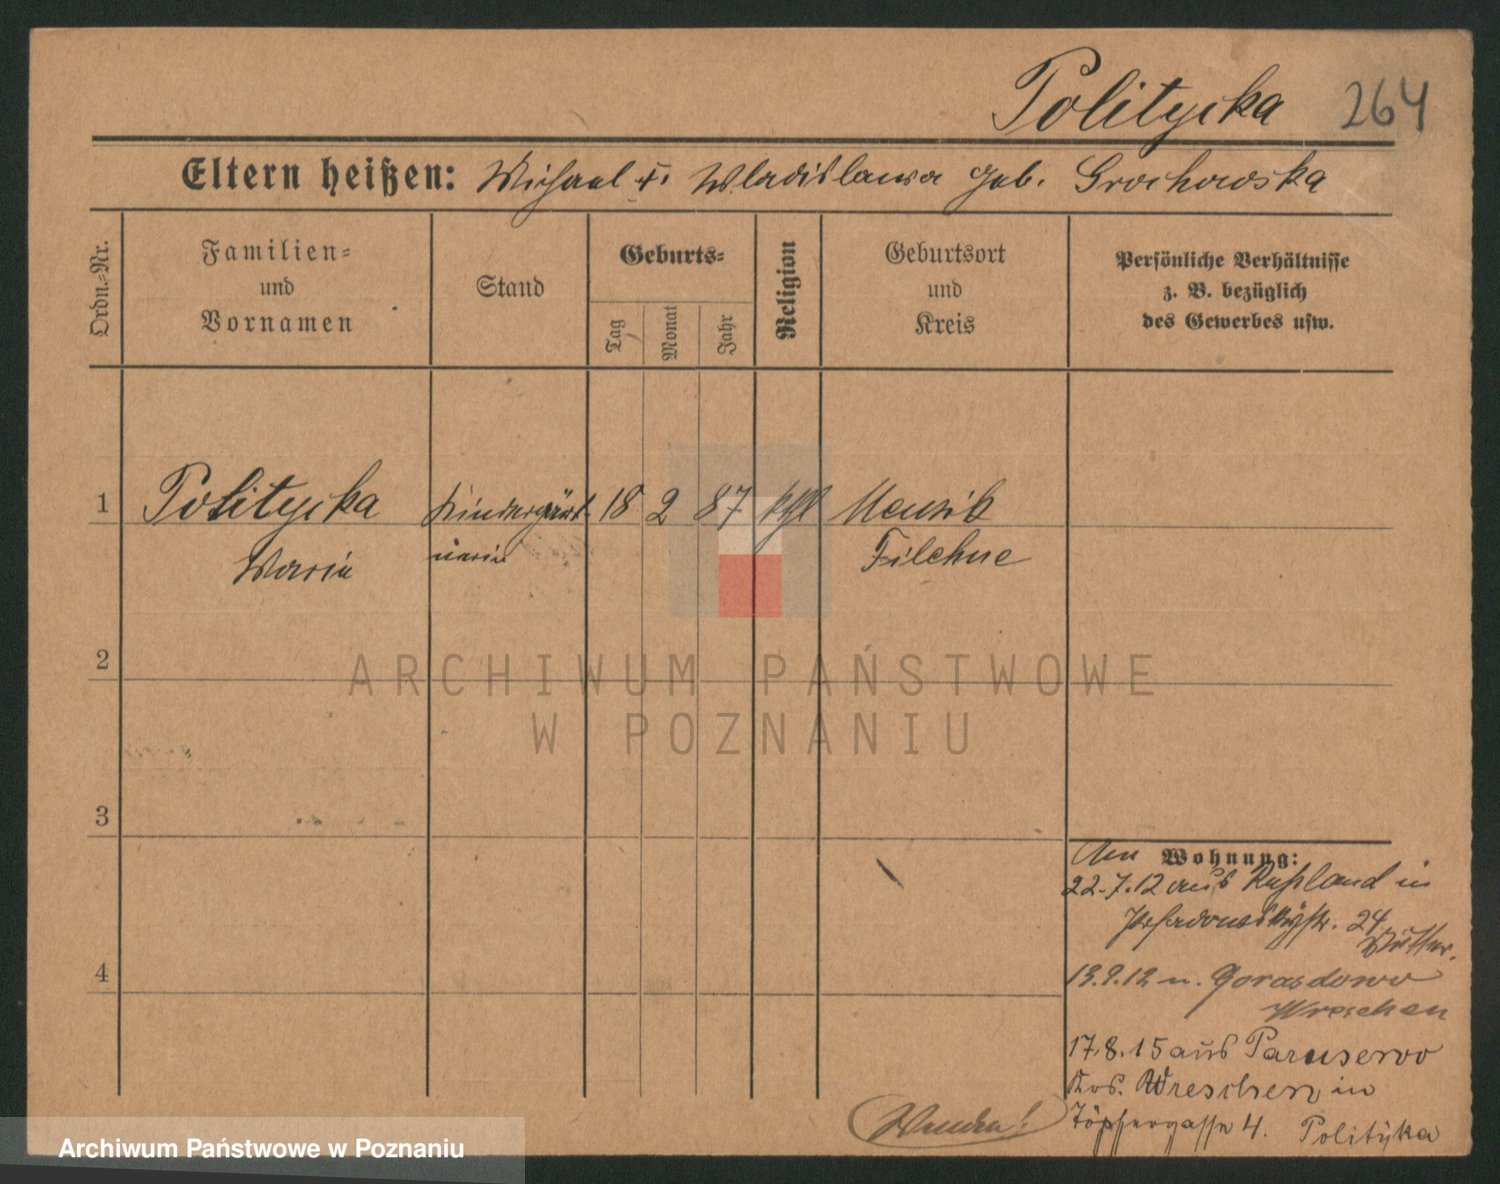 Politycka 264
Eltern heißen: Michael u. Wladislawa geb. Grochowska
Ordn.-Nr.
Familien-
und
Vornamen
Stand
Geburts-
Tag
Monat
Jahr
Religion
Geburtsort
und
Kreis
Persönliche Verhältnisse
z. B. bezüglich
des Gewerbes usw.
1 Politycka Kindergärt- 18 2 87 kth
Maria nerin Filehne
2
3
4
Wohnung:
22.7.12 aus Rußland in
24
13.9.12 n. Gorasdowo
Wreschen
17.8.15 aus Paruserwo
Krs. Wreschen in
Töpfergasse 4. Polityka
Wenden!
ARCHIWUM PAŃSTWOWE
W POZNANIU
Archiwum Państwowe w Poznaniu